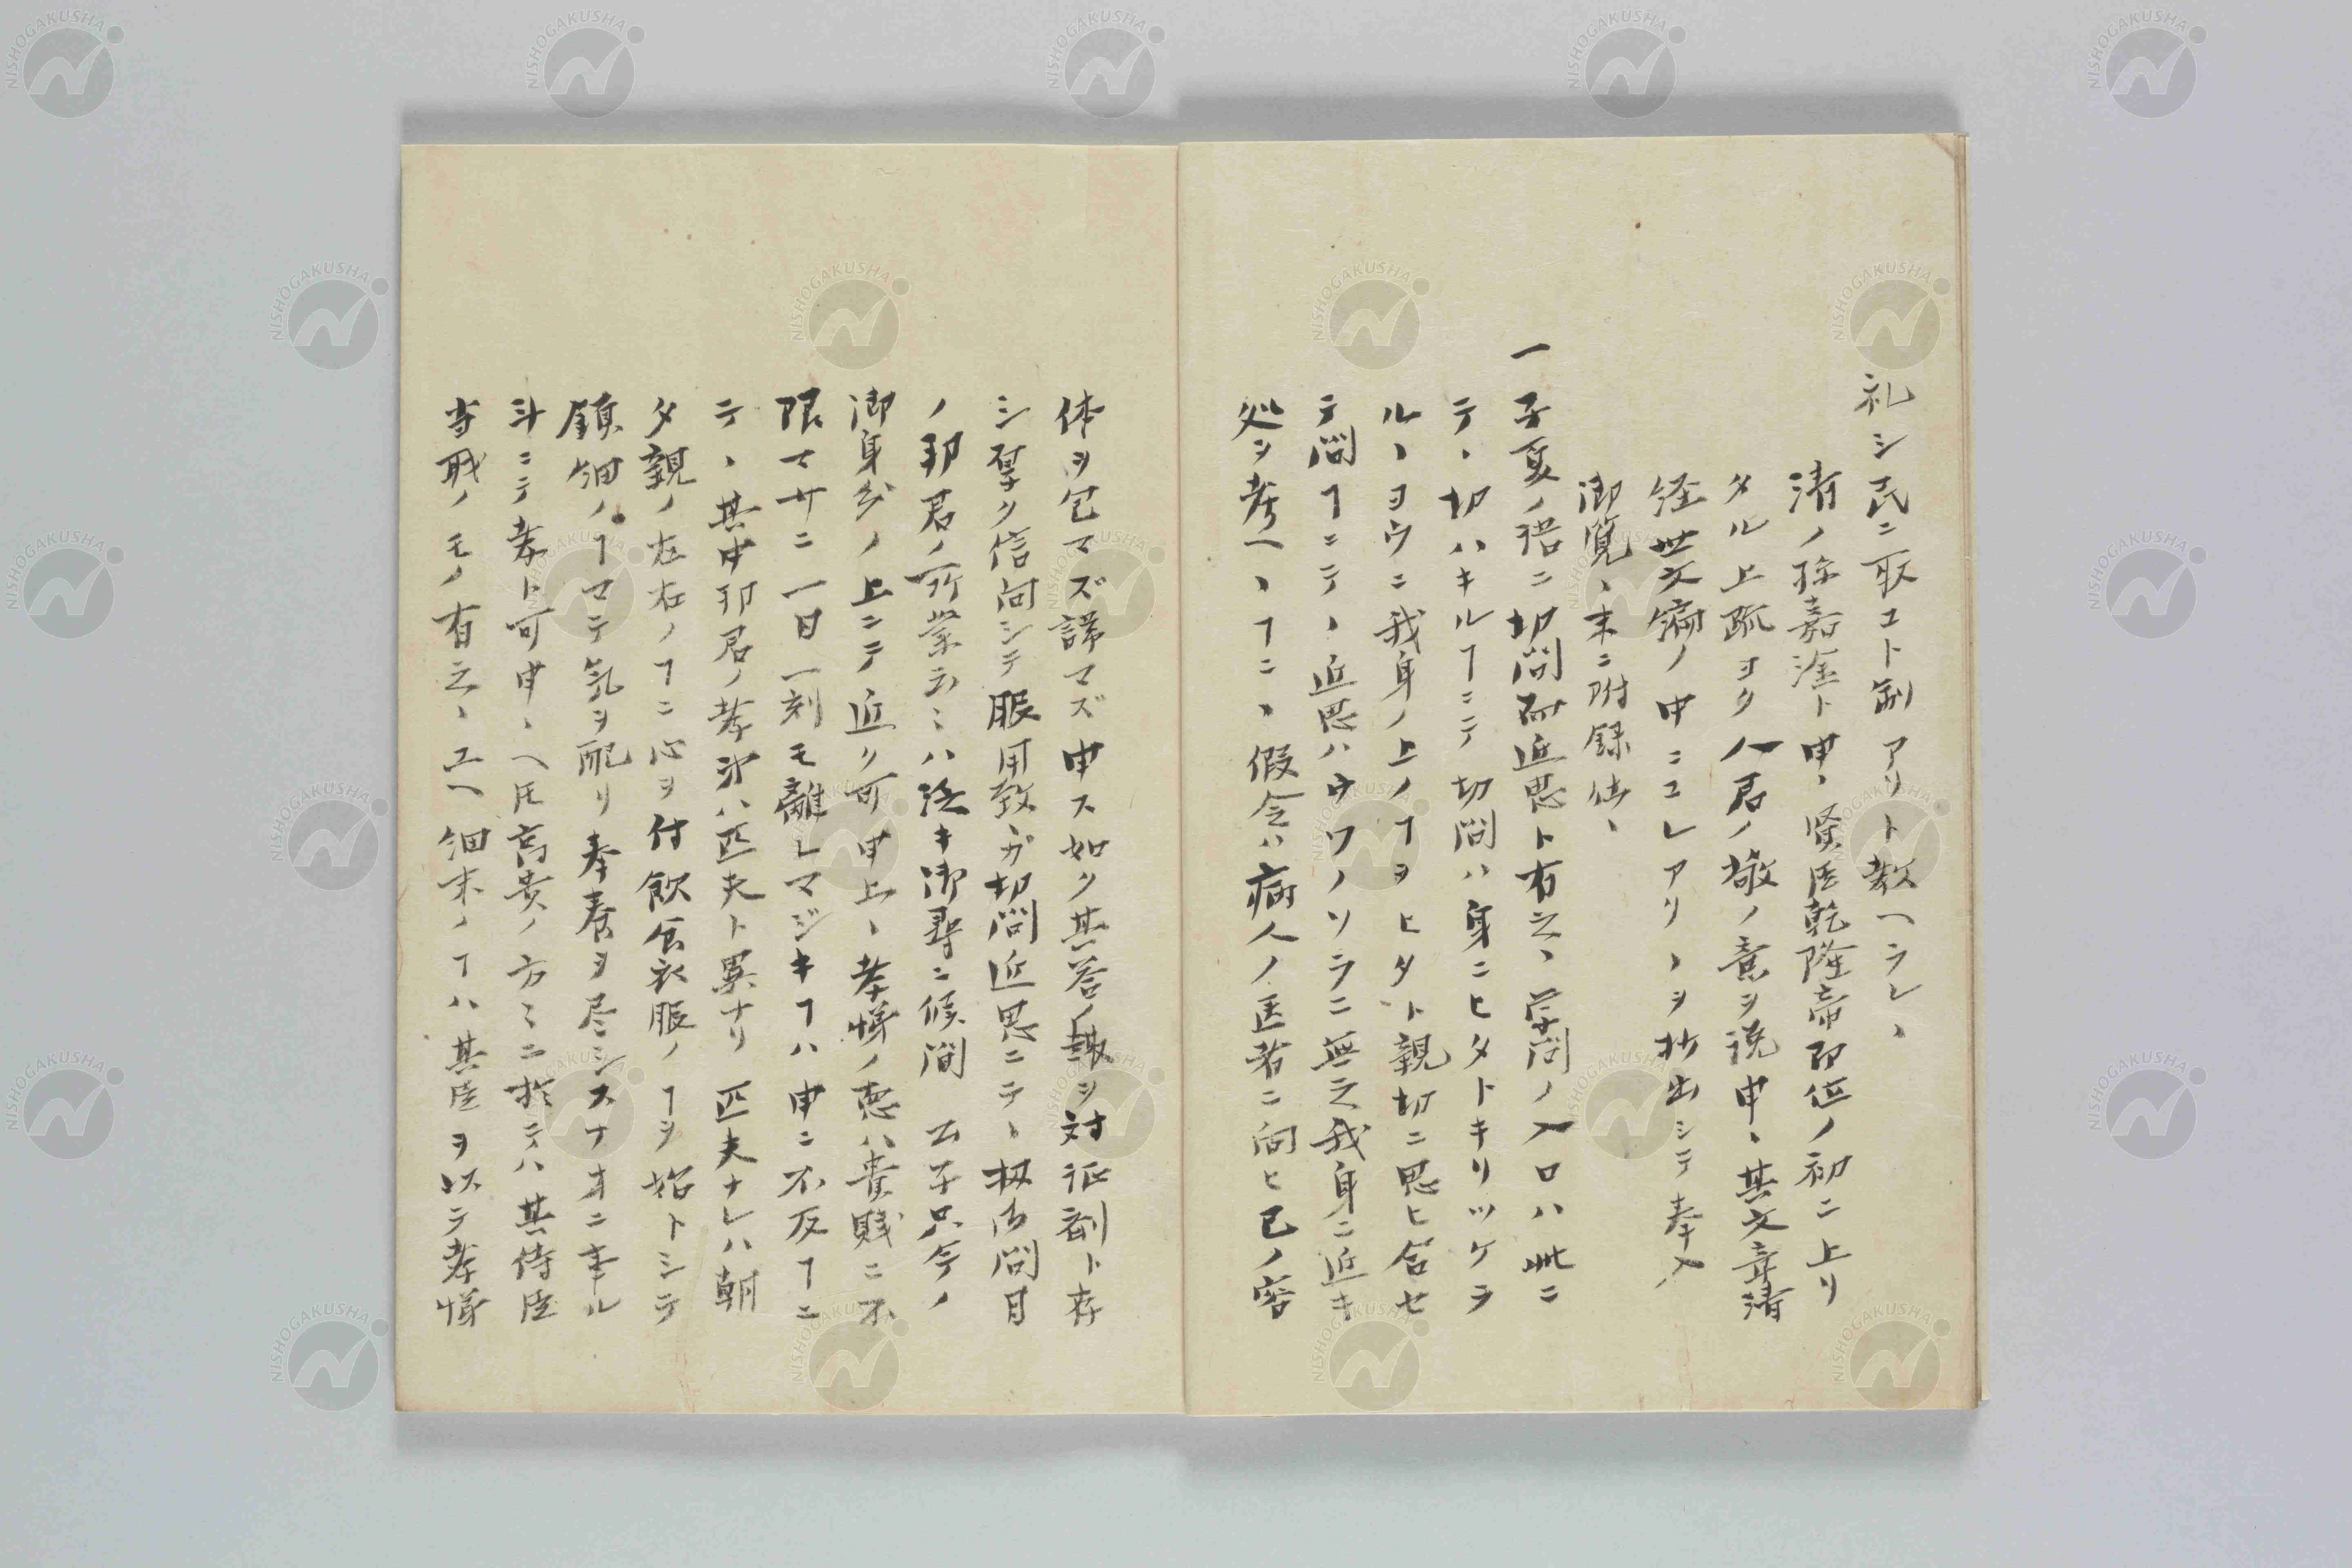 礼シ民ニ取コト制アリト教ヘラレ、
清ノ孫嘉淦ト申、賢臣乾隆帝即位ノ初ニ上リ
タル上疏ヨク人君ノ敬ノ意ヲ説申、其文章清
経世文編ノ中ニコレアリ、ヲ抄出シテ奉入
御覧、末ニ附録仕、
一子夏ノ語ニ切問而近思ト有之、学問ノ入口ハ此ニ
テ、切ハキルヿニテ切問ハ身ニヒタトキリツケラ
ル、ヨウニ我身ノ上ノヿヲヒタト親切ニ思ヒ合セ
テ問ヿニテ、近思ハウワノソラニ無之我身ニ近キ
処ヲ考ヘ、ヿニ、假令ハ病人ノ医者ニ向ヒ己ノ容
体ヲ包マズ諱マズ申ス如ク其答ノ趣ヲ対証剤ト存
シ厚ク信向シテ服用致ガ切問近思ニテ、扨御問目
ノ邦君ノ所業云〻ハ浅キ御尋ニ候間 公子只今ノ
御身分ノ上ニテ近ク可申上、孝悌ノ悳ハ貴賤ニ不
限マサニ一日一刻モ離レマジキヿハ申ニ不及ヿニ
テ、其中邦君ノ孝弟ハ匹夫ト異ナリ 匹夫ナレハ朝
夕親ノ左右ノヿニ心ヲ付飲食衣服ノヿヲ始トシテ
鎖細ノヿマテ気ヲ配リ奉養ヲ尽シスナオニ事ル
斗ニテ孝ト可申、ヘ𪜈高貴ノ方〻ニ於テハ其侍臣
等職ノモノ有之、ユヘ細末ノヿハ其臣ヲ以テ孝悌
NISHOGAKUSHA